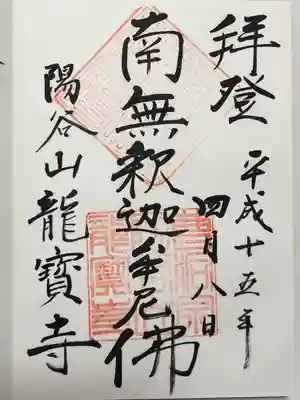 拝登
平成十五年
四月八日
南無釈迦牟尼佛
陽谷山龍寳寺